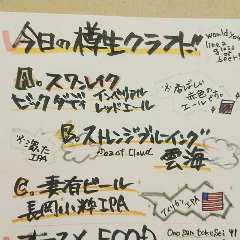 今日の樽生クラフト
would you like a glass of beer?
A. スワンレイク
ビッグダディ インペリアルレッドエール
※香ばしい赤色のエールです
B. ストレンジブルーイング
Sea of Cloud 雲海
※濁ったIPA
C. 妻有ビール
長岡小粋IPA
アメリカIPA
One pan tokusei
FOOD